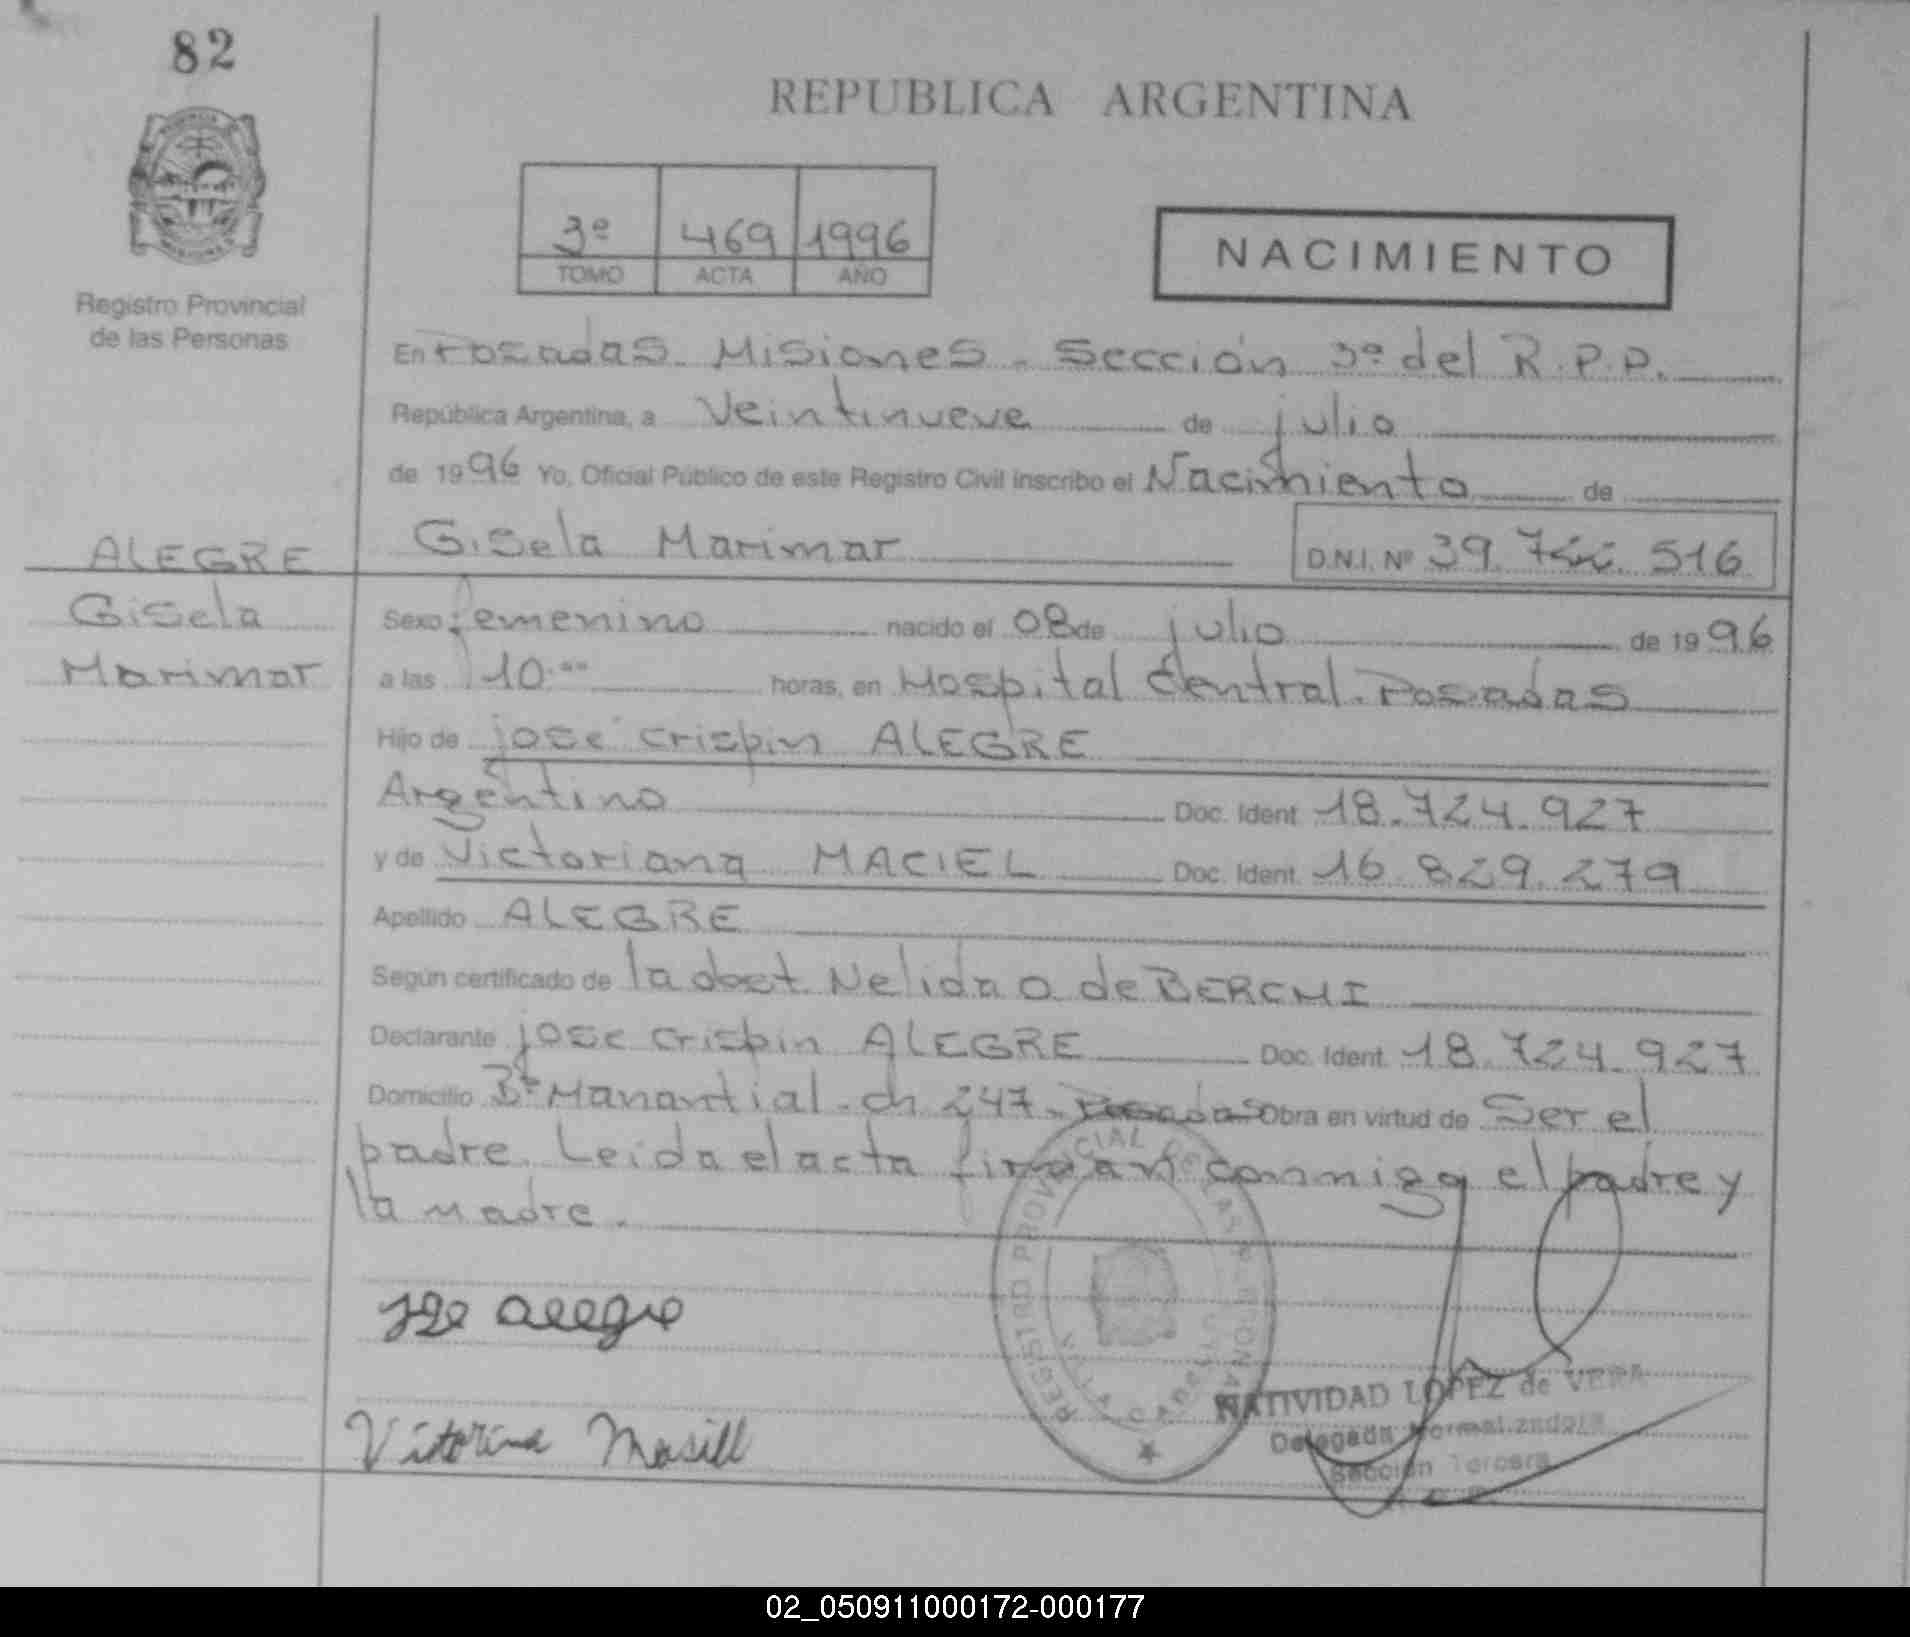 82
REPUBLICA ARGENTINA
3º 469 1996
TOMO ACTA AÑO
NACIMIENTO
Registro Provincial
de las Personas
En Posadas Misiones. Sección 3ª del R.P.P.
República Argentina, a Veintinueve de julio
de 1996 Yo, Oficial Público de este Registro Civil inscribo el Nacimiento de
Gisela Marimar D.N.I. Nº 39. 516
ALEGRE
Gisela
Marimar
Sexo femenino nacido el 08 de julio de 1996
a las 10.00 horas, en Hospital Central. Posadas
Hijo de josé crispin ALEGRE
Argentino Doc. Ident. 18.724.927
y de Victoriana MACIEL Doc. Ident. 16.829.279
Apellido ALEGRE
Según certificado de la doct. Nelida O. de
Declarante jose crispin ALEGRE Doc. Ident. 18.724.927
Domicilio Bº Manantial. ch 247. Posadas Obra en virtud de Ser el
padre. Leida el acta firman conmigo el padre y
la madre.
REGISTRO PROVINCIAL DE LAS PERSONAS
jose alegre
NATIVIDAD LOPEZ de VERA
Delegada Normalizadora
Sección Tercera
02_050911000172-000177